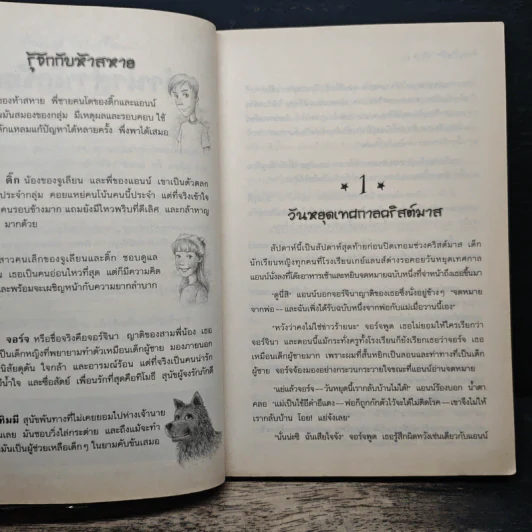 รู้จักกับห้าสหาย
ของห้าสหาย พี่ชายคนโตของดิ๊กและแอนน์
มันสมองของกลุ่ม มีเหตุผลและรอบคอบ ใช้
แหลมแก้ปัญหาได้หลายครั้ง พึ่งพาได้เสมอ
ดิ๊ก น้องของจูเลียน และพี่ของแอนน์ เขาเป็นตัวตลก
ประจำกลุ่ม คอยแหย่คนโน้นคนนี้ประจำ แต่ที่จริงเข้าใจ
คนรอบข้างมาก แถมยังมีไหวพริบที่ดีเลิศ และกล้าหาญ
มากด้วย
สาวคนเล็กของจูเลียนและดิ๊ก ชอบดูแล
เธอเป็นคนอ่อนไหวที่สุด แต่ก็มีความคิด
และพร้อมจะเผชิญหน้ากับความยากลำบาก
จอร์จ หรือชื่อจริงคือจอร์จินา ญาติของสามพี่น้อง เธอ
เป็นเด็กหญิงที่พยายามทำตัวเหมือนเด็กผู้ชาย มองภายนอก
นิสัยดุดัน ใจกล้า และอารมณ์ร้อน แต่ที่จริงเป็นคนน่ารัก
มีน้ำใจ และซื่อสัตย์ เพื่อนรักที่สุดคือทิโมธี สุนัขผู้จงรักภักดี
ทิมมี สุนัขพันทางที่ไม่เคยยอมไปห่างเจ้านาย
เลย มันชอบวิ่งไล่กระต่าย และถึงแม้จะทำ
มันเป็นผู้ช่วยเหลือเด็กๆ ในยามคับขันเสมอ
★ 1 ★
วันหยุดเทศกาลคริสต์มาส
สัปดาห์นี้เป็นสัปดาห์สุดท้ายก่อนปิดเทอมช่วงคริสต์มาส เด็ก
นักเรียนหญิงทุกคนที่โรงเรียนเกย์แลนด์ต่างรอคอยวันหยุดเทศกาล
แอนน์นั่งลงที่โต๊ะอาหารเช้าและหยิบจดหมายฉบับหนึ่งที่จ่าหน้าถึงเธอขึ้นมา
"ดูนี่สิ" แอนน์บอกจอร์จินาญาติของเธอซึ่งนั่งอยู่ข้างๆ "จดหมาย
จากพ่อ—และฉันเพิ่งได้รับฉบับหนึ่งจากพ่อกับแม่เมื่อวานนี้เอง"
"หวังว่าคงไม่ใช่ข่าวร้ายนะ" จอร์จพูด เธอไม่ยอมให้ใครเรียกว่า
จอร์จินา และตอนนี้แม้กระทั่งครูทั้งโรงเรียนก็ยังเรียกเธอว่าจอร์จ เธอ
เหมือนเด็กผู้ชายมาก เพราะผมที่สั้นหยิกเป็นลอนและท่าทางที่เป็นเด็ก
ผู้ชาย จอร์จจ้องมองอย่างกระวนกระวายใจขณะที่แอนน์อ่านจดหมาย
"แย่แล้วจอร์จ—วันหยุดนี้เรากลับบ้านไม่ได้" แอนน์ร้องบอก น้ำตา
คลอ "แม่เป็นไข้อีดำอีแดง—พ่อก็ถูกกักตัวไว้จะได้ไม่ติดโรค—เขาจึงไม่ให้
เรากลับบ้าน โอย! แย่จังเลย"
"นั่นน่ะซิ ฉันเสียใจจัง" จอร์จพูด เธอรู้สึกผิดหวังเช่นเดียวกับแอนน์